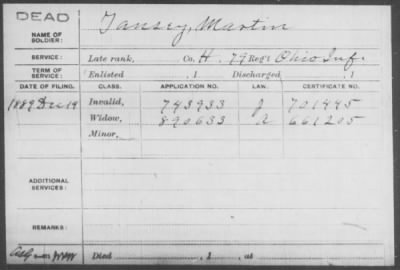 DEAD
NAME OF SOLDIER: Tansey, Martin
SERVICE: Late rank, Co. H. 79 Reg't Ohio Inf.
TERM OF SERVICE: Enlisted , 1 Discharged , 1
DATE OF FILING. CLASS. APPLICATION NO. LAW. CERTIFICATE NO.
1889 Dec 19 Invalid, 743933 J 701445
Widow, 890633 A 661205
Minor,
ADDITIONAL SERVICES:
REMARKS:
Died , 1 , at